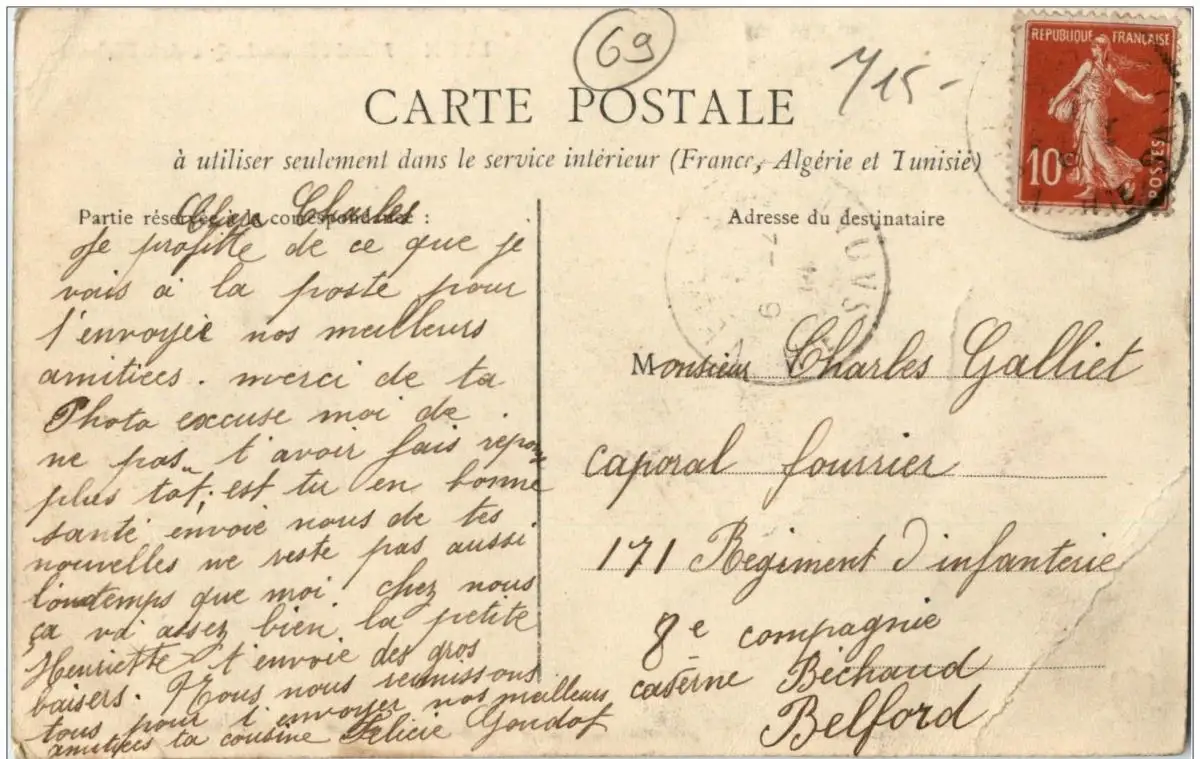 69
715-
REPUBLIQUE FRANÇAISE
10c
POSTES
CARTE POSTALE
à utiliser seulement dans le service intérieur (France, Algérie et Tunisie)
Partie réservée à la correspondance :
Cher Charles
Je profitte de ce que je
vais a la poste pour
t'envoyée nos meilleurs
amitiées. merci de ta
Photo excuse moi de
ne pas t'avoir fais repons
plus tot. est tu en bonne
santé envoie nous de tes
nouvelles ne reste pas aussi
longtemps que moi chez nous
ça va assez bien la petite
Henriette t'envoie des gros
baisers. Nous nous reunissons
tous pour t'envoyer nos meilleurs
amitiées ta cousine Felicie
Adresse du destinataire
Monsieur Charles Galliet
caporal fourrier
171 Regiment d'infanterie
8e compagnie
caserne Béchaud
Belford